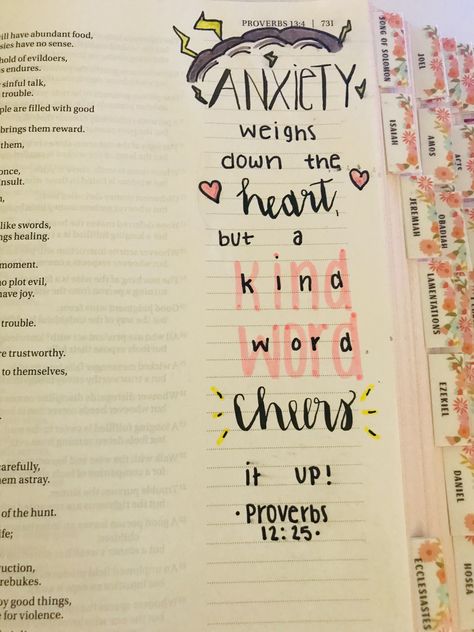 PROVERBS 13:4 | 731
ANXIETY
weighs
down the
heart,
but a
kind
word
cheers
it up!
• Proverbs
12:25 •
will have abundant food,
sies have no sense.
hold of evildoers,
s endures.
sinful talk,
trouble.
ple are filled with good
brings them reward.
them,
once,
nsult.
like swords,
ngs healing.
moment.
no plot evil,
have joy.
trouble.
re trustworthy.
to themselves,
carefully,
hem astray.
of the hunt.
ife;
ruction,
rebukes.
oy good things,
e for violence.
SONG OF SOLOMON
ISAIAH
JEREMIAH
LAMENTATIONS
EZEKIEL
DANIEL
ECCLESIASTES
HOSEA
JOEL
AMOS
OBADIAH
ACTS